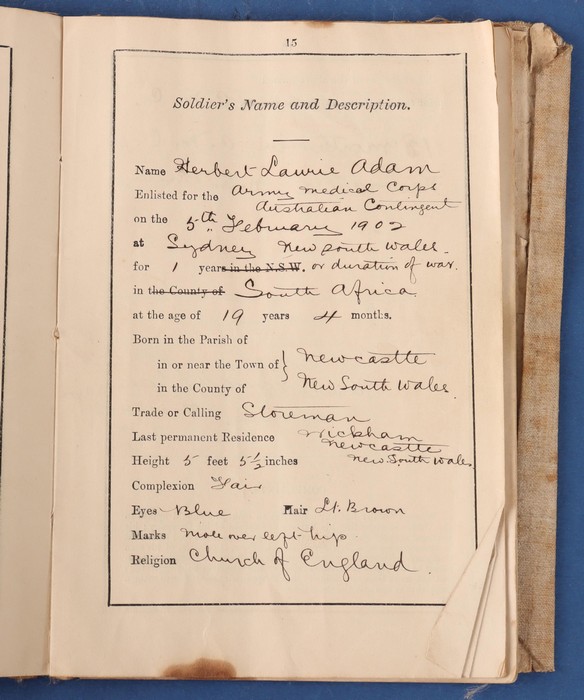 15
Soldier's Name and Description.
Name Herbert Laurie Adam
Enlisted for the Army Medical Corps
Australian Contingent
on the 5th February 1902
at Sydney New South Wales.
for 1 years in the N.S.W. or duration of war.
in the County of South Africa
at the age of 19 years 4 months.
Born in the Parish of
in or near the Town of } Newcastle
in the County of New South Wales.
Trade or Calling Storeman
Last permanent Residence Wickham
Newcastle
Height 5 feet 5½ inches New South Wales
Complexion Fair
Eyes Blue Hair Lt. Brown
Marks Mole over left hip
Religion Church of England.